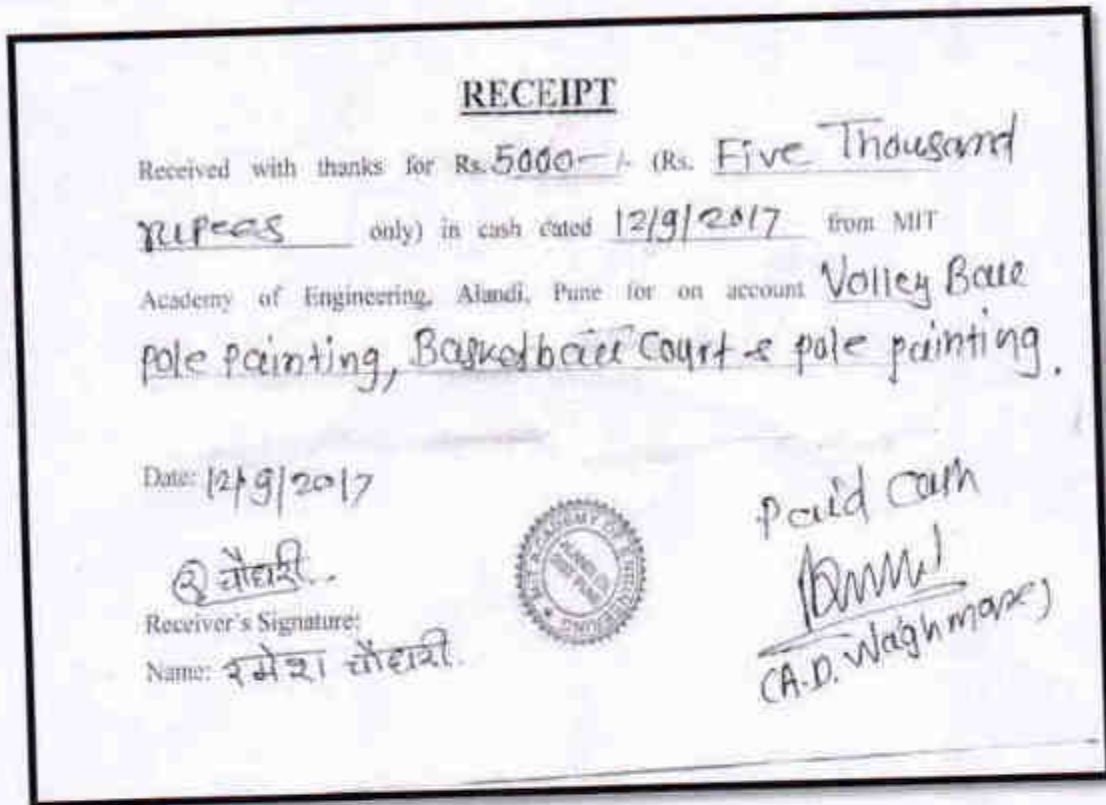 RECEIPT
Received with thanks for Rs. 5000-/- (Rs. Five Thousand
rupees only) in cash dated 12/9/2017 from MIT
Academy of Engineering, Alandi, Pune for on account Volley Ball
pole painting, Basketball Court & pole painting.
Date: 12/9/2017
Paid Cash
र चौधरी..
Receiver's Signature:
Name: रमेश चौधरी.
(A.D. Waghmare)
MIT ACADEMY OF ENGINEERING